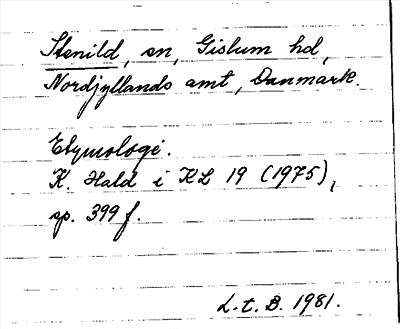 Stenild, sn, Gislum hd,
Nordjyllands amt, Danmark.
Etymologi.
K. Hald i KL 19 (1975),
sp. 399 f.
L.t.B. 1981.